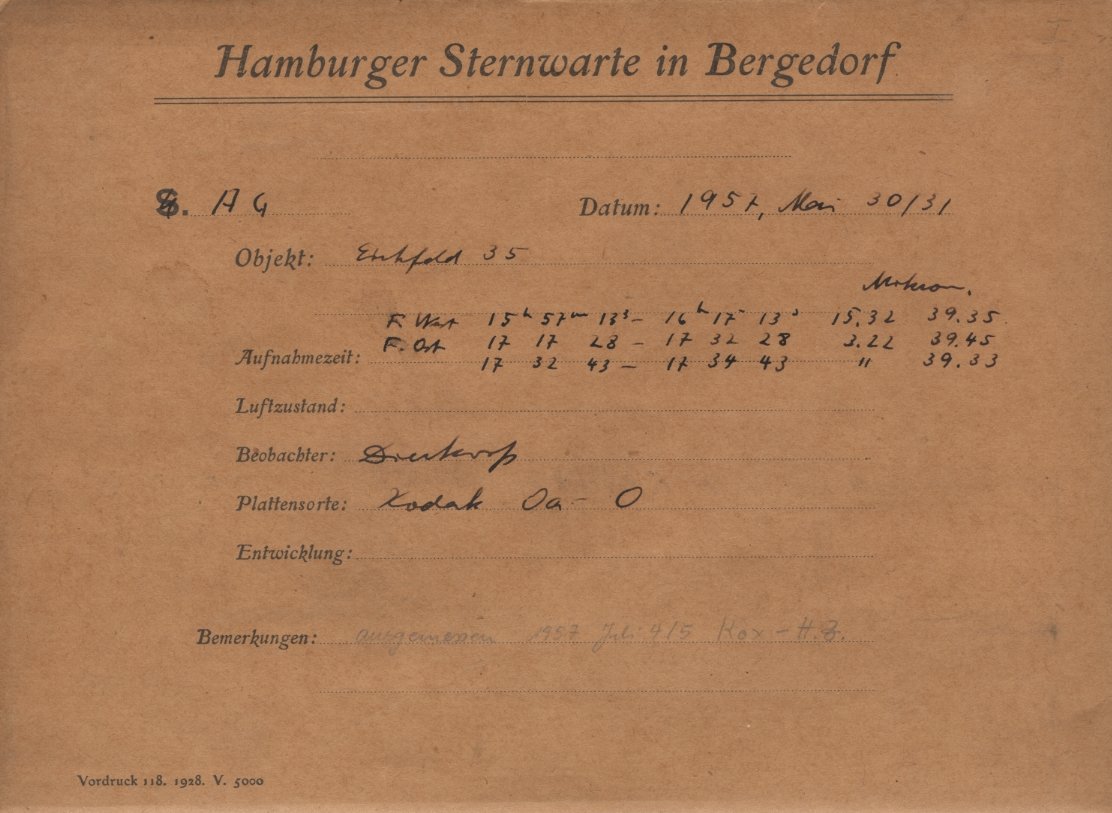 Hamburger Sternwarte in Bergedorf
S. A G Datum: 1957, Mai 30/31
Objekt: Eichfeld 35
Mikrom.
F. West 15h 57m 13s – 16h 17m 13s 15.32 39.35
F. Ost 17 17 28 – 17 32 28 3.22 39.45
Aufnahmezeit: 17 32 43 – 17 34 43 " 39.33
Luftzustand:
Beobachter:
Plattensorte: Kodak Oa – O
Entwicklung:
Bemerkungen: ausgemessen 1957 Juli 4/5 Kox – H.
Vordruck 118. 1928. V. 5000